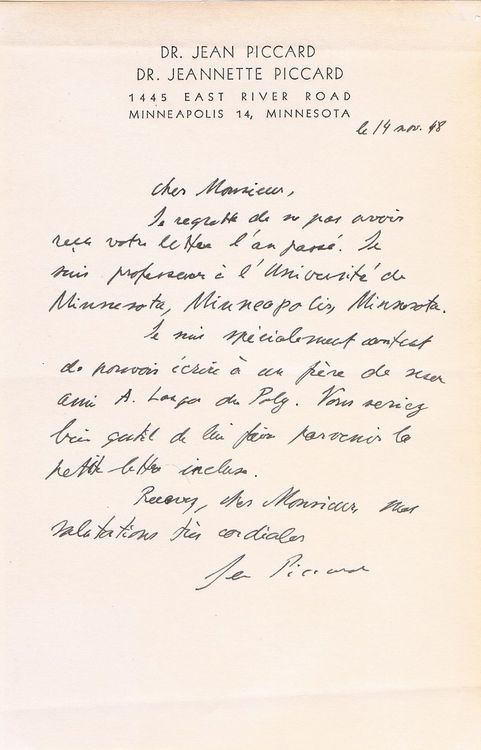 DR. JEAN PICCARD
DR. JEANNETTE PICCARD
1445 EAST RIVER ROAD
MINNEAPOLIS 14, MINNESOTA
le 14 nov. 48
cher Monsieur,
Je regrette de ne pas avoir
reçu votre lettre l'an passé. Je
suis professeur à l'Université de
Minnesota, Minneapolis, Minnesota.
Je suis spécialement content
de pouvoir écrire à un frère de mon
ami A. du Poly. Vous seriez
bien gentil de lui faire parvenir la
petite lettre incluse.
Recevez, cher Monsieur, mes
salutations très cordiales
Jean Piccard